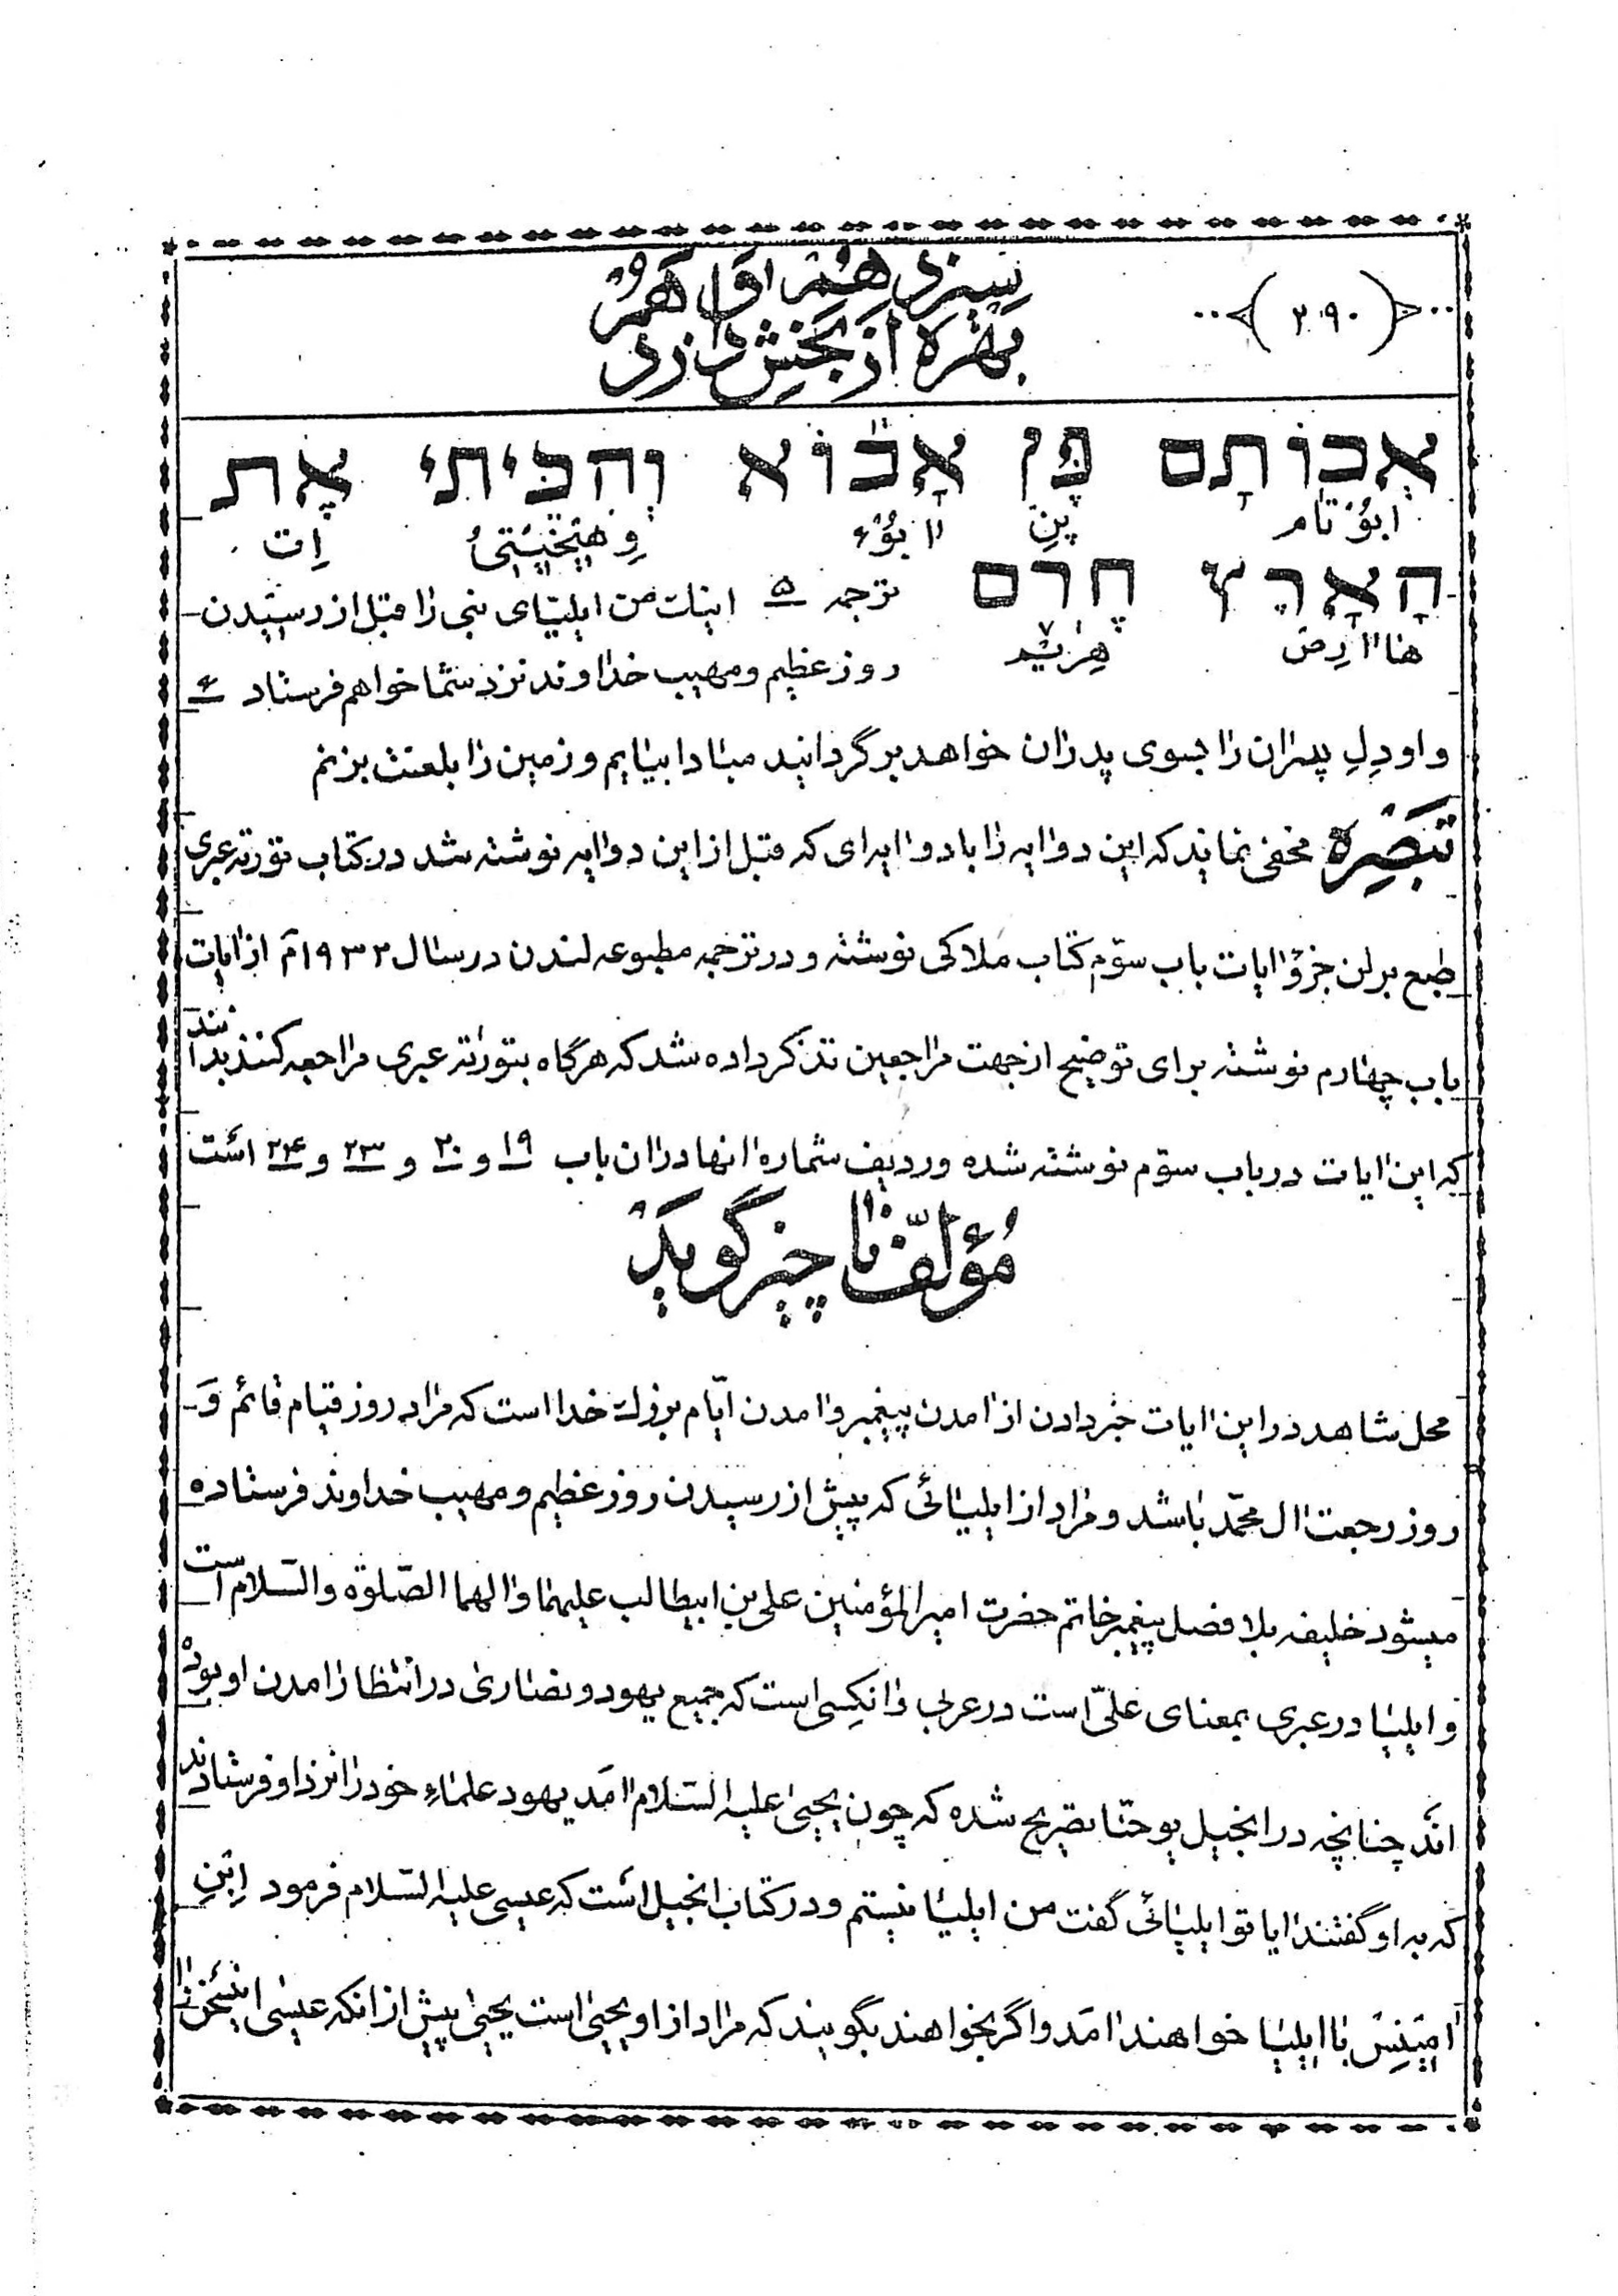 ﴿۲۹۰﴾
بهره از بخش دوازدهم
אבותם פן אבוא והכיתי את
ابوتام پن ابوء وهیخیتی ات
הארץ חרם
ترجمه ۵ اینات من ایلیای نبی را قبل از رسیدن
هاارص
روز عظیم و مهیب خداوند نزد شما خواهم فرستاد ۶
و او دِلِ پسران را بسوی پدران خواهد برگردانید مبادا بیایم و زمین را بلعنت بزنم
تبصره مخفی نماند که این دو ایه را با دو ایه ای که قبل از این دو ایه نوشته شد در کتاب توریة عبری
طبع برلن جزؤ ایات باب سوّم کتاب ملاکی نوشته و در ترجمه مطبوعه لندن در سال ۱۹۳۲م از ایات
باب چهارم نوشته برای توضیح از جهت مراجعین تذکر داده شد که هرگاه بتوراة عبری مراجعه کنند بدانند
که این ایات در باب سوّم نوشته شده و ردیف شماره انها در ان باب ۱۹ و ۲۰ و ۲۳ و ۲۴ است
مُؤلّف ناچیز گوید
محل شاهد در این ایات خبر دادن از امدن پیغمبر و امدن ایّام بزرك خدا است که مراد روز قیام قائم و
روز رجعت ال محمّد باشد و مراد از ایلیائی که پیش از رسیدن روز عظیم و مهیب خداوند فرستاده
میشود خلیفه بلا فصل پیغمبر خاتم حضرت امیر المؤمنین علی بن ابیطالب علیهما و الهما الصّلوة والسّلام است
و ایلیا در عبری بمعنای علیّ است در عربی و انکسی است که جمیع یهود و نصاری در انتظار امدن او بوده
اند چنانچه در انجیل یوحنّا تصریح شده که چون یحیی علیه السّلام امد یهود علماء خود را نزد او فرستادند
که به او گفتند ایا تو ایلیائی گفت من ایلیا نیستم و در کتاب انجیل است که عیسی علیه السّلام فرمود اِبنِ
امیَنِس با ایلیا خواهند امد و اگر بخواهند بگویند که مراد از او یحیی است یحیی پیش از انکه عیسی این سخن را